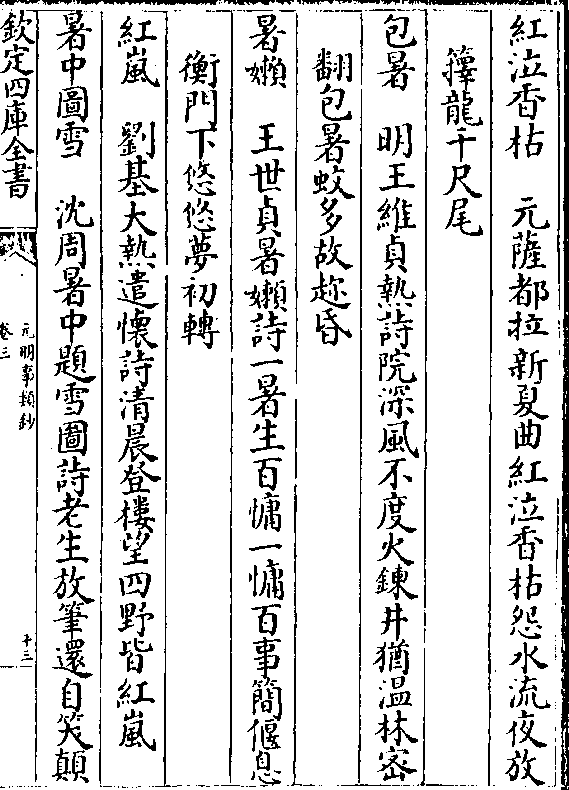 紅泣香枯　元薩都拉新夏曲紅泣香枯怨水流夜放
籜龍千尺尾
包暑　明王維貞熱詩院深風不度火鍊井猶温林密
翻包暑蚊多故趂昏
暑嬾　王世貞暑嬾詩一暑生百慵一慵百事簡偃息
衡門下悠悠夢初轉
紅嵐　劉基大熱遣懷詩清晨登樓望四野皆紅嵐
暑中圖雪　沈周暑中題雪圖詩老生放筆還自笑顛
欽定四庫全書
元明事類鈔
卷三
十三